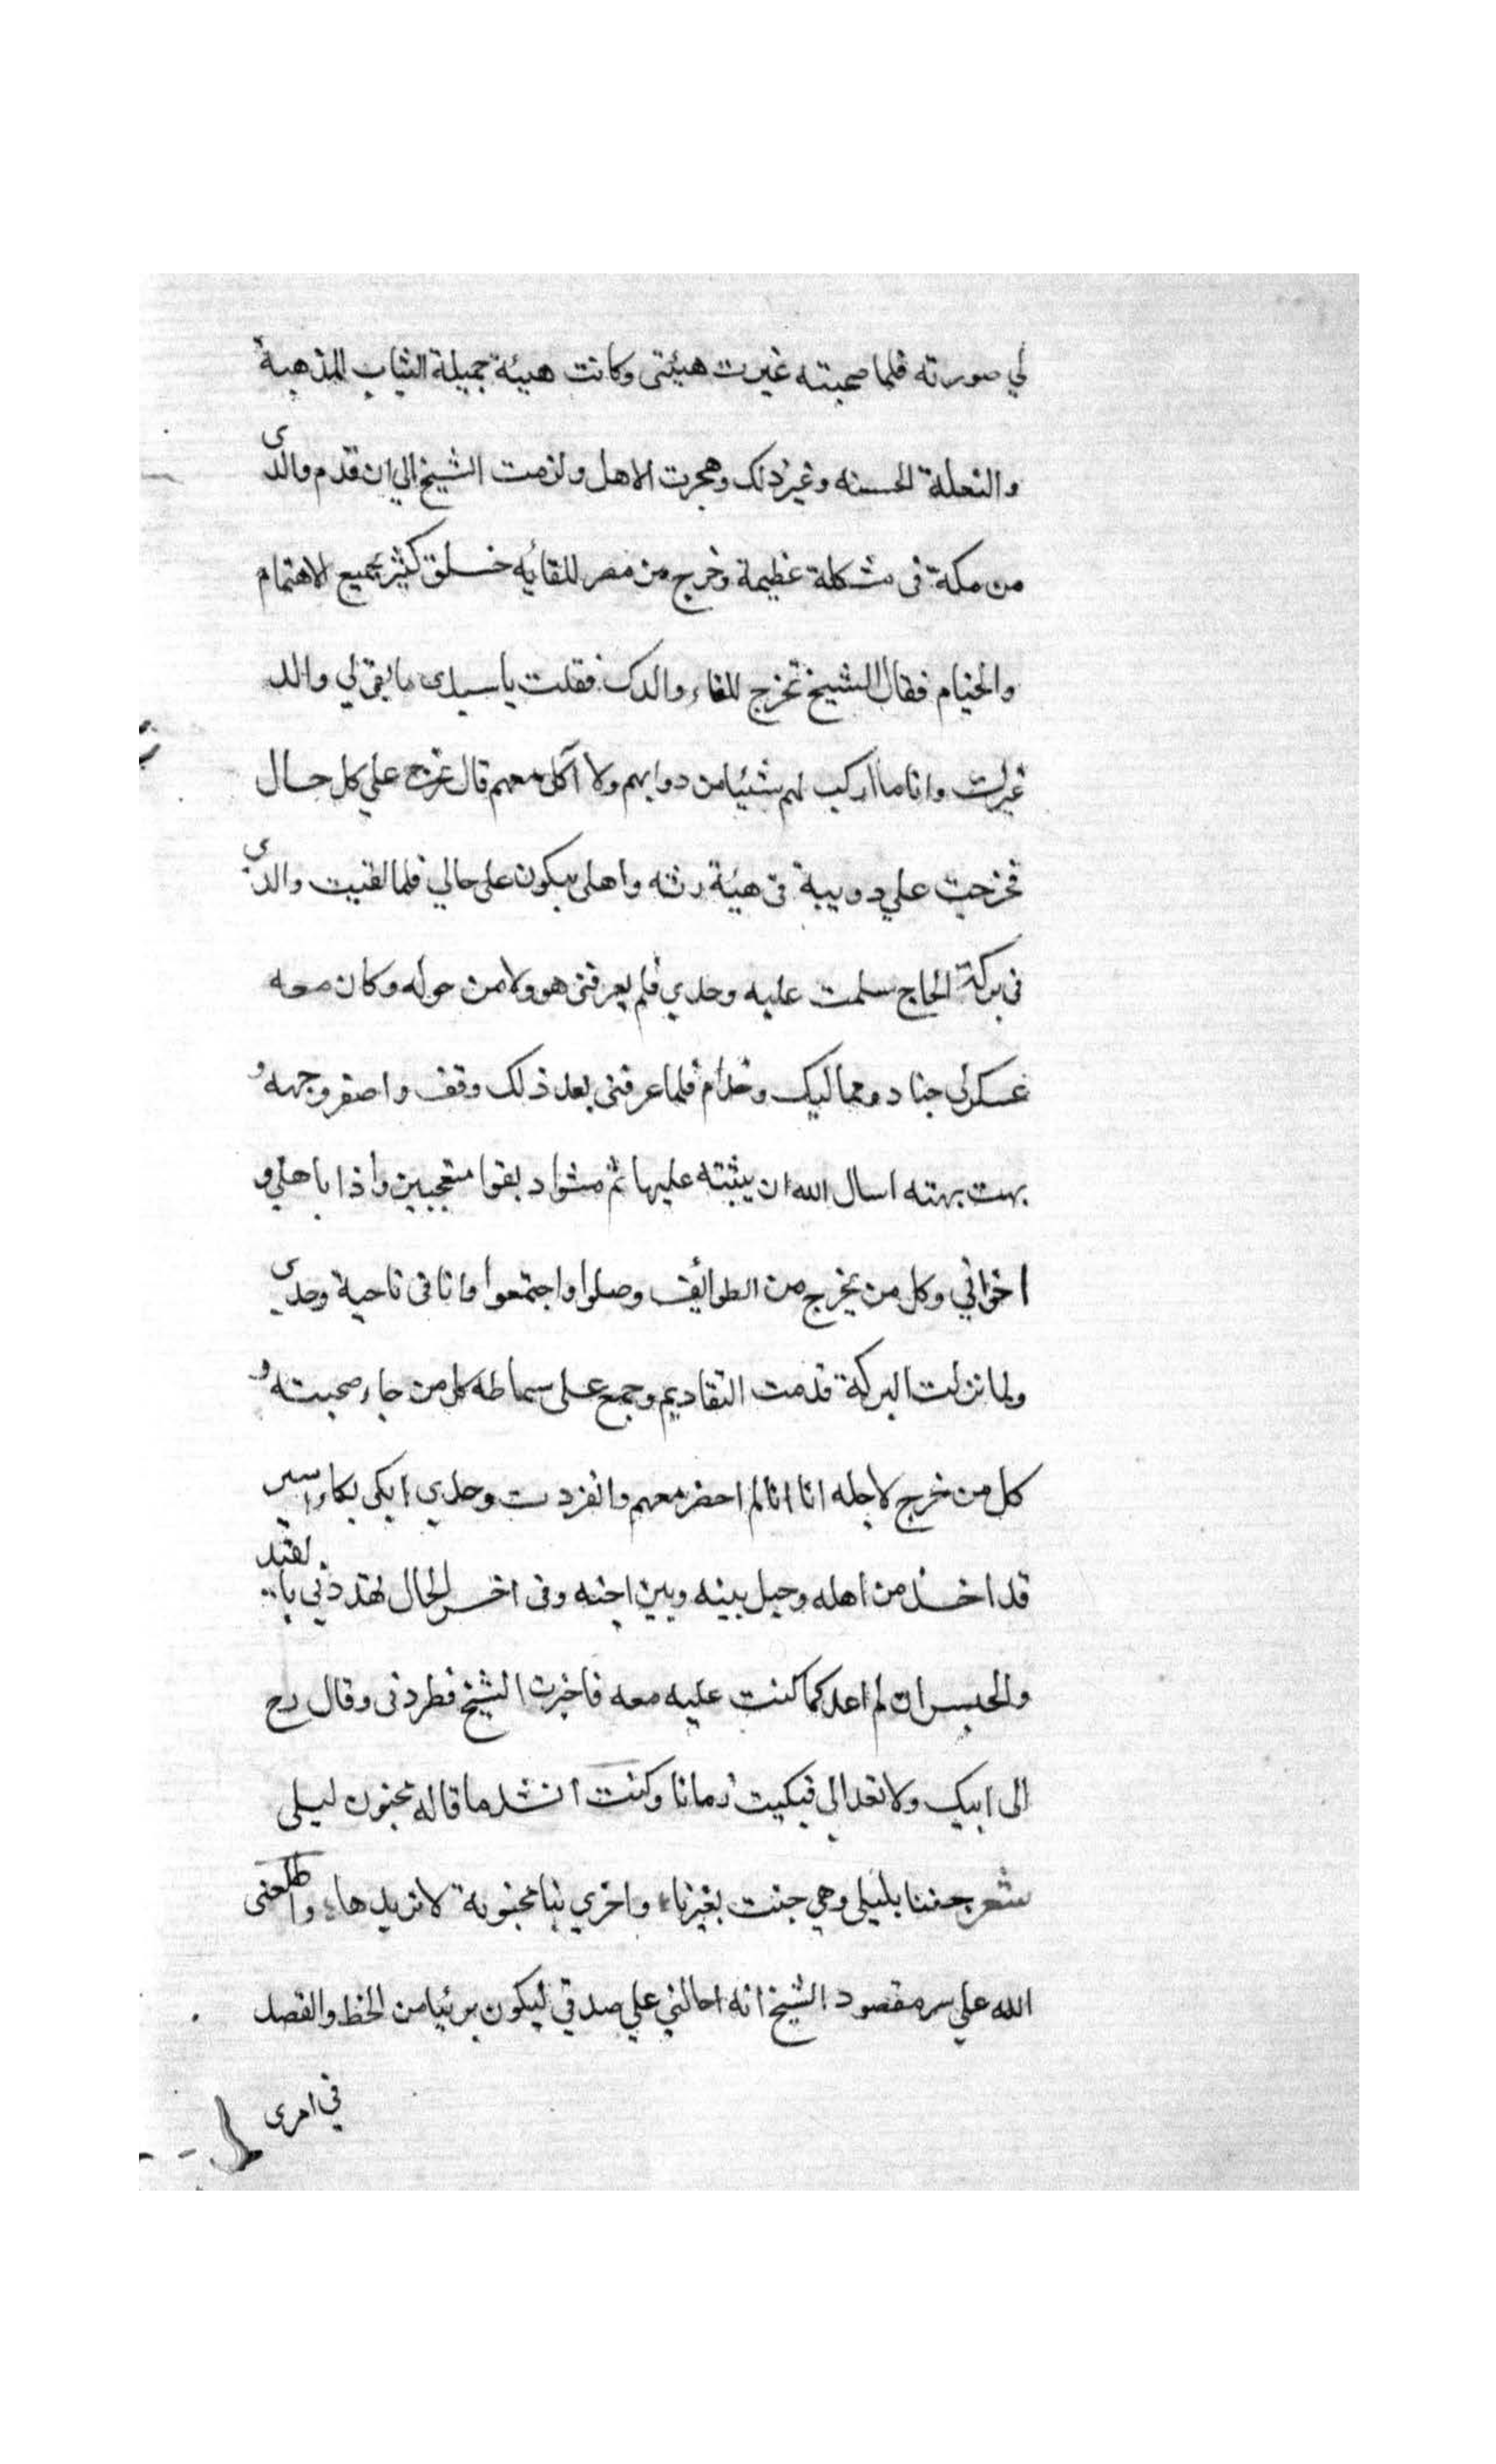 لي صورته فلما صحبته غيرت هيئتى وكانت هيئة جميلة الثياب المذهبة
والنعلة الحسنه وغير ذلك وهجرت الاهل ولزمت الشيخ الي ان قدم والدى
من مكة فى مشكلة عظيمة وخرج من مصر للقائه خلق كثير بجميع الاهتمام
والخيام فقال الشيخ تخرج للقاء والدك فقلت يا سيدى ما بقى لي والد
غيرك وانا ما اركب لهم شيئا من دوابهم ولا آكل معهم قال تخرج علي كل حال
فخرجت علي دويبة فى هيئة رثه واهلى يبكون على حالي فلما لقيت والدى
فى بركة الحاج سلمت عليه وحدي فلم يعرفنى هو ولا من حوله وكان معه
عسكر جناد ومماليك وخدام فلما عرفنى بعد ذلك وقف واصفر وجهه و
بهت بهته اسال الله ان يثبته عليها ثم مشوا د بقوا متعجبين واذا باهلي و
اخواني وكل من يخرج من الطوائف وصلوا واجتمعوا وانا فى ناحية وحدى
ولما نزلت البركة قدمت التقاديم وجمع على سماطه كل من جاء صحبته و
كل من خرج لاجله انا انا لم احضر معهم وانفردت وحدي ابكى بكاء اسير
قد اخذ من اهله وحيل بينه وبين احبه وفى اخر الحال تهددني بالقيد
والحبس ان لم اعد كما كنت عليه معه فاخبرت الشيخ فطردنى وقال رح
الى ابيك ولا تعد الي فبكيت زمانا وكنت انشد ما قاله مجنون ليلى
شعر جننا بليلى وهي جنت بغيرنا واخري بنا مجنونة لا نريدها واطلعنى
الله علي سر مقصود الشيخ انه احالني علي صدقي ليكون بريئا من الحظ والقصد
في امرى